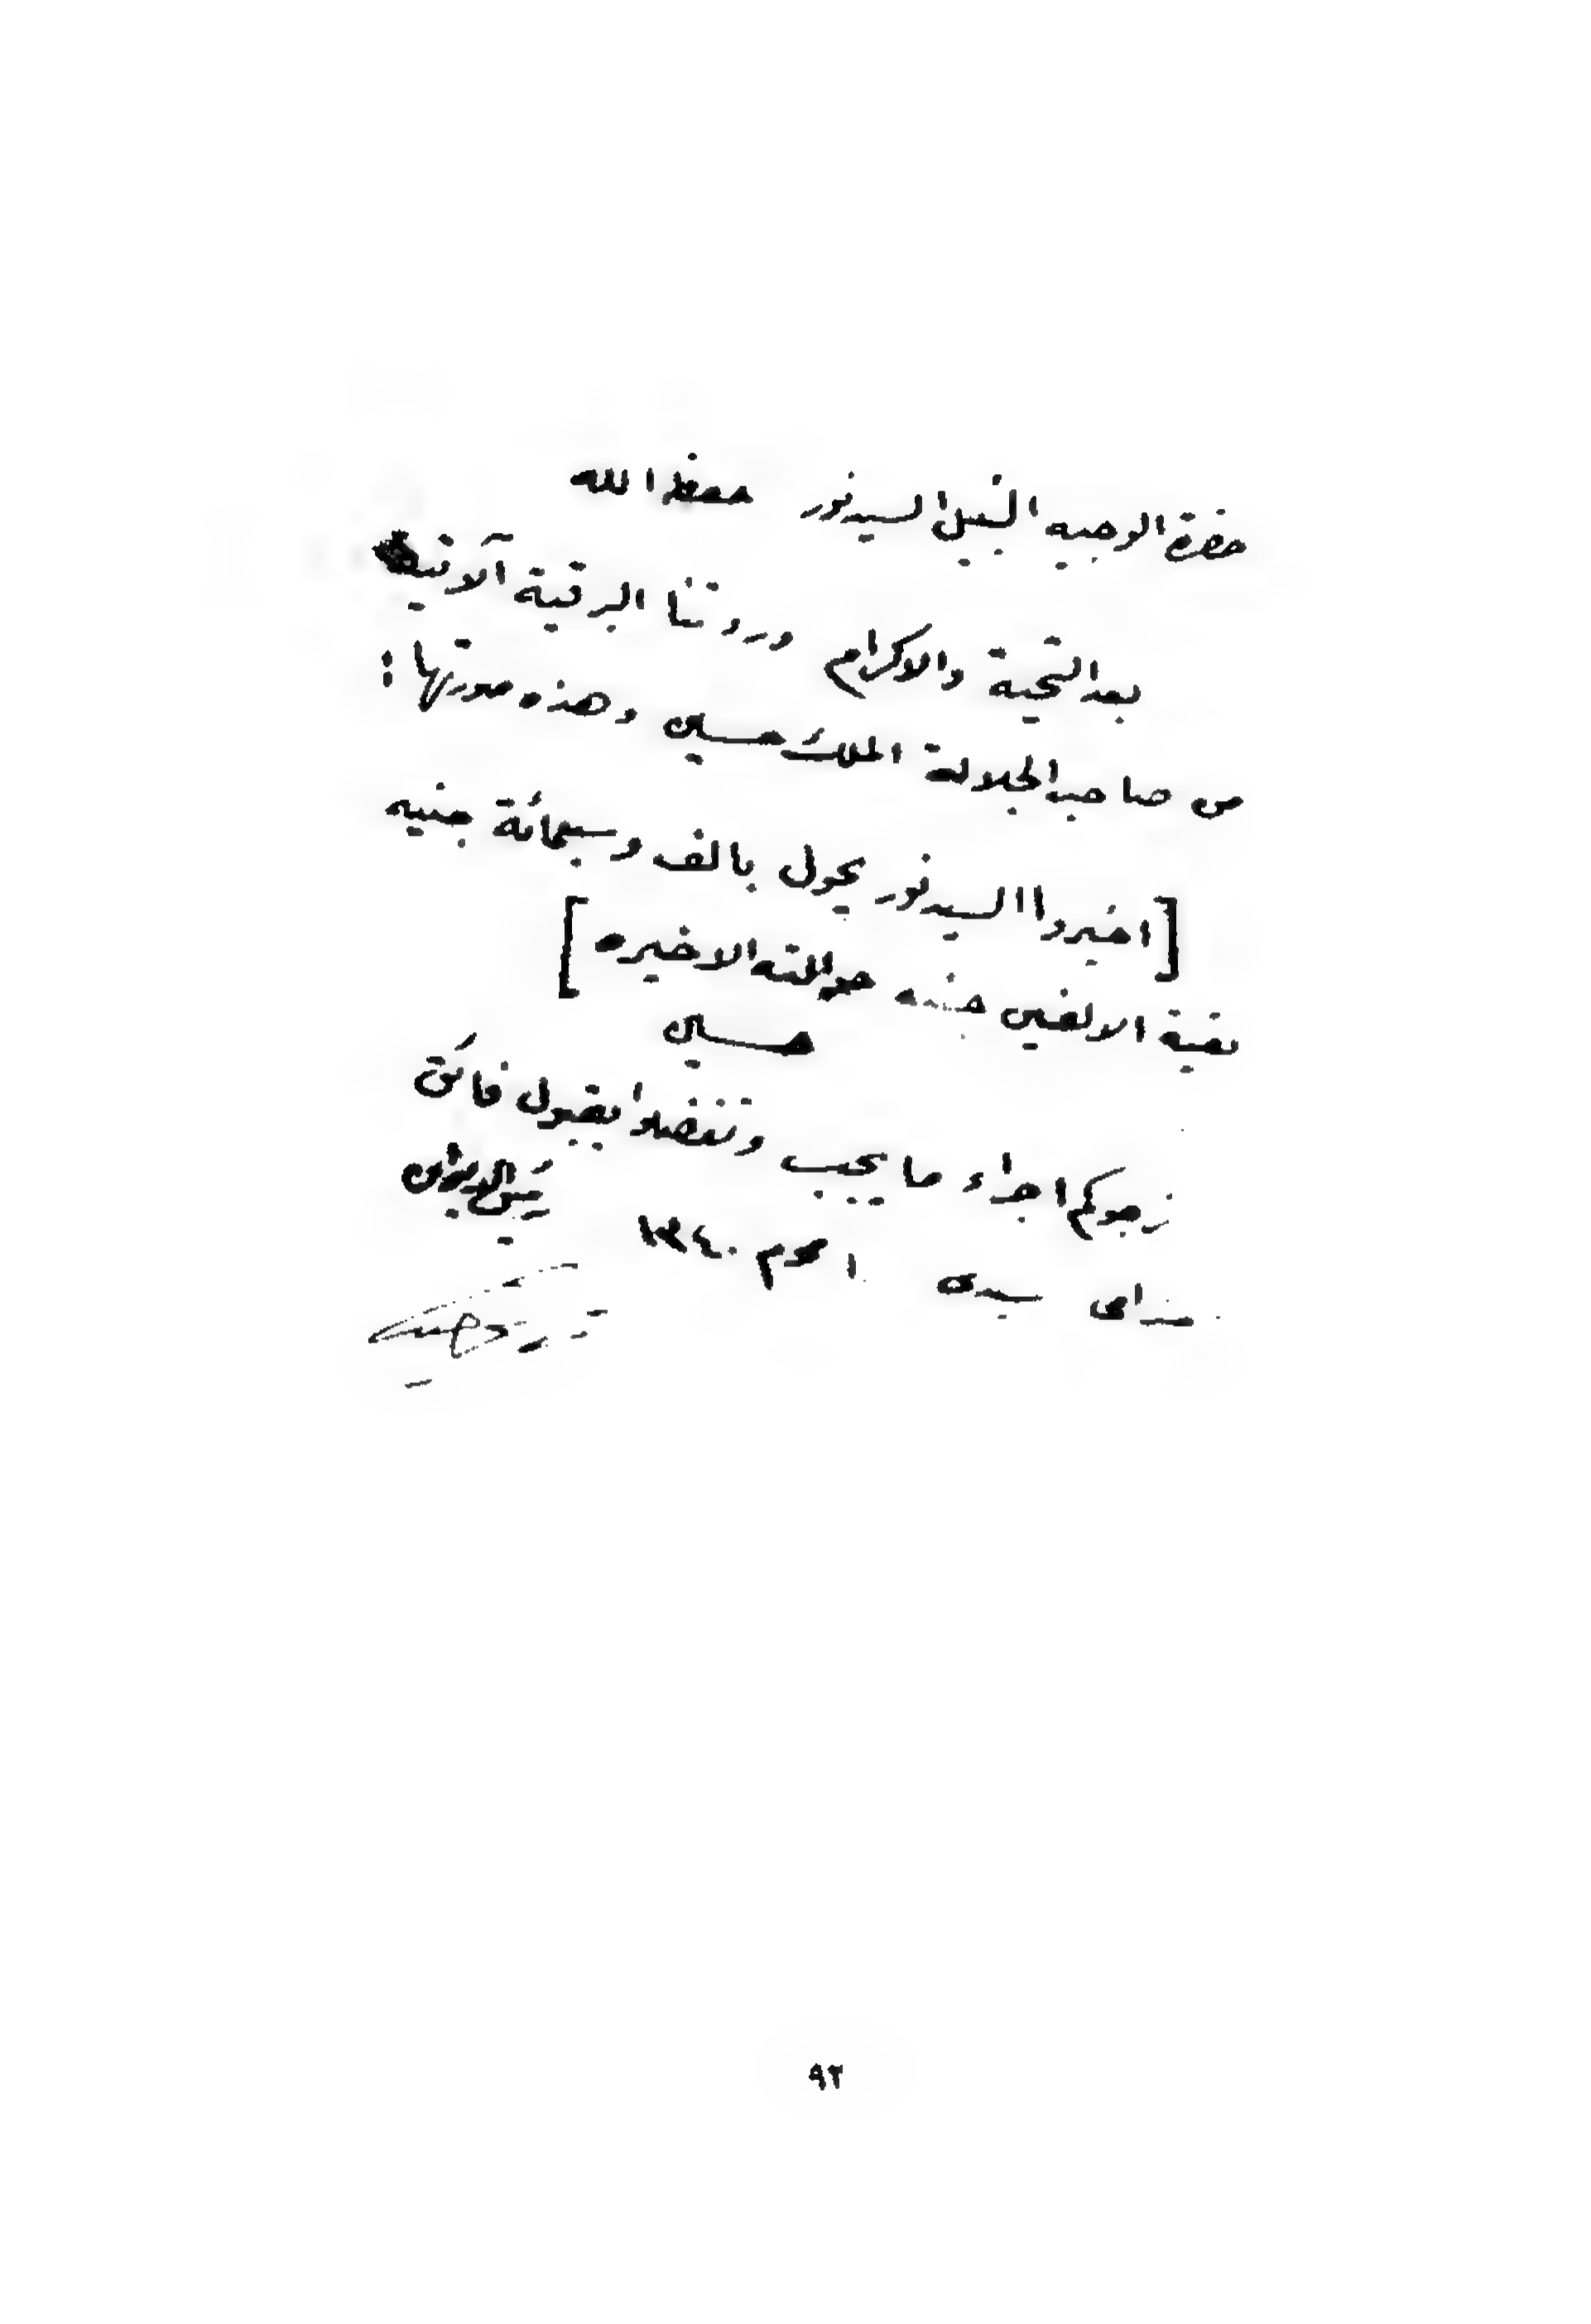 حضرة الوجيه النبيل السيد نور حفظه الله
بعد التحية والاكرام وردتنا البرقية الآتية
من صاحب الجلالة الملك حسين وهذه صورتها :
[ اخبروا السيد نور يحول بالف وسبعمائة جنيه
بقية الالفين جنيه حوالته الاخيره ]
حسين
نرجوكم اجراء ما يجب وتفضلوا بقبول فائق
احترامى سيدى ١ محرم ١٣٤٠ رئيس الديوان
٩٢